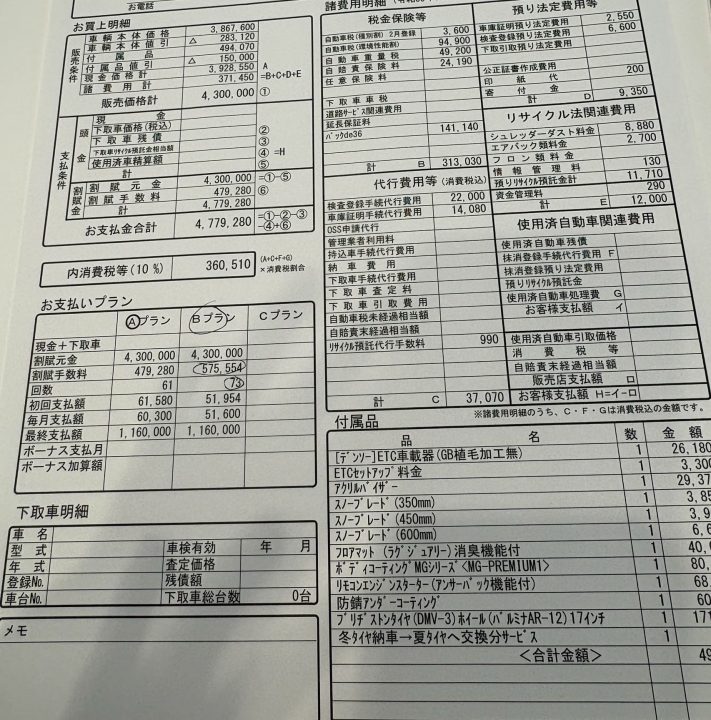 お電話
お買上明細
販売条件
車輌本体価格 3,867,600
車輌本体値引 △ 283,120
付属品 494,070
付属品値引 △ 150,000
現金価格計 3,928,550 A
諸費用計 371,450 =B+C+D+E
販売価格計 4,300,000 ①
支払条件
頭金
現金
下取車価格(税込) ②
下取車残債 ③
下取車ﾘｻｲｸﾙ預託金相当額 ④ =H
使用済車精算額 ⑤
計
割賦金
割賦元金 4,300,000 =①-⑤
割賦手数料 479,280 ⑥
計 4,779,280
お支払金合計 4,779,280 =①-②-③
-④+⑥
内消費税等(10%) 360,510 (A+C+F+G)
×消費税割合
お支払いプラン
Aプラン Bプラン Cプラン
現金+下取車
割賦元金 4,300,000 4,300,000
割賦手数料 479,280 575,554
回数 61 73
初回支払額 61,580 51,954
毎月支払額 60,300 51,600
最終支払額 1,160,000 1,160,000
ボーナス支払月
ボーナス加算額
下取車明細
車名
型式 車検有効 年 月
年式 査定価格
登録No. 残債額
車台No. 下取車総台数 0台
メモ
諸費用明細
税金保険等
自動車税(種別割) 2月登録 3,600
自動車税(環境性能割) 94,900
自動車重量税 49,200
自賠責保険料 24,190
任意保険料
下取車車税
道路ｻｰﾋﾞｽ関連費用
延長保証料
ﾊﾟｯｸde36 141,140
計 B 313,030
代行費用等(消費税込)
検査登録手続代行費用 22,000
車庫証明手続代行費用 14,080
OSS申請代行
管理業者利用料
持込車手続代行費用
納車費用
下取車手続代行費用
下取車査定料
下取車引取費用
自動車税未経過相当額
自賠責未経過相当額
ﾘｻｲｸﾙ預託代行手数料 990
計 C 37,070
預り法定費用等
車庫証明預り法定費用 2,550
検査登録預り法定費用 6,600
下取引取預り法定費用
公正証書作成費用
印紙代 200
寄付金
計 D 9,350
リサイクル法関連費用
シュレッダーダスト料金 8,880
エアバック類料金 2,700
フロン類料金
情報管理料 130
預りﾘｻｲｸﾙ預託金計 11,710
資金管理料 290
計 E 12,000
使用済自動車関連費用
使用済自動車残債
抹消登録手続代行費用 F
抹消登録預り法定費用
預りリサイクル預託金
使用済自動車処理費 G
お客様支払額 イ
使用済自動車引取価格
消費税等
自賠責未経過相当額
販売店支払額 ロ
お客様支払額 H=イ-ロ
※諸費用明細のうち、C・F・Gは消費税込の金額です。
付属品
品名 数 金額
[ﾃﾞﾝｿｰ]ETC車載器(GB植毛加工無) 1 26,180
ETCｾｯﾄｱｯﾌﾟ料金 1 3,300
ｱｸﾘﾙﾊﾞｲｻﾞｰ 1 29,37
ｽﾉｰﾌﾞﾚｰﾄﾞ(350mm) 1 3,85
ｽﾉｰﾌﾞﾚｰﾄﾞ(450mm) 1 3,9
ｽﾉｰﾌﾞﾚｰﾄﾞ(600mm) 1 6,6
ﾌﾛｱﾏｯﾄ(ﾗｸﾞｼﾞｭｱﾘｰ)消臭機能付 1 40,
ﾎﾞﾃﾞｨｺｰﾃｨﾝｸﾞMGｼﾘｰｽﾞ<MG-PREMIUM1> 1 80,
ﾘﾓｺﾝｴﾝｼﾞﾝｽﾀｰﾀｰ(ｱﾝｻｰﾊﾞｯｸ機能付) 1 68,
防錆ｱﾝﾀﾞｰｺｰﾃｨﾝｸﾞ 1 60
ﾌﾞﾘﾁﾞｽﾄﾝﾀｲﾔ(DMV-3)ﾎｲｰﾙ(ﾊﾞﾙﾐﾅAR-12)17ｲﾝﾁ 1 171
冬ﾀｲﾔ納車→夏ﾀｲﾔへ交換分ｻｰﾋﾞｽ 1
<合計金額> 49